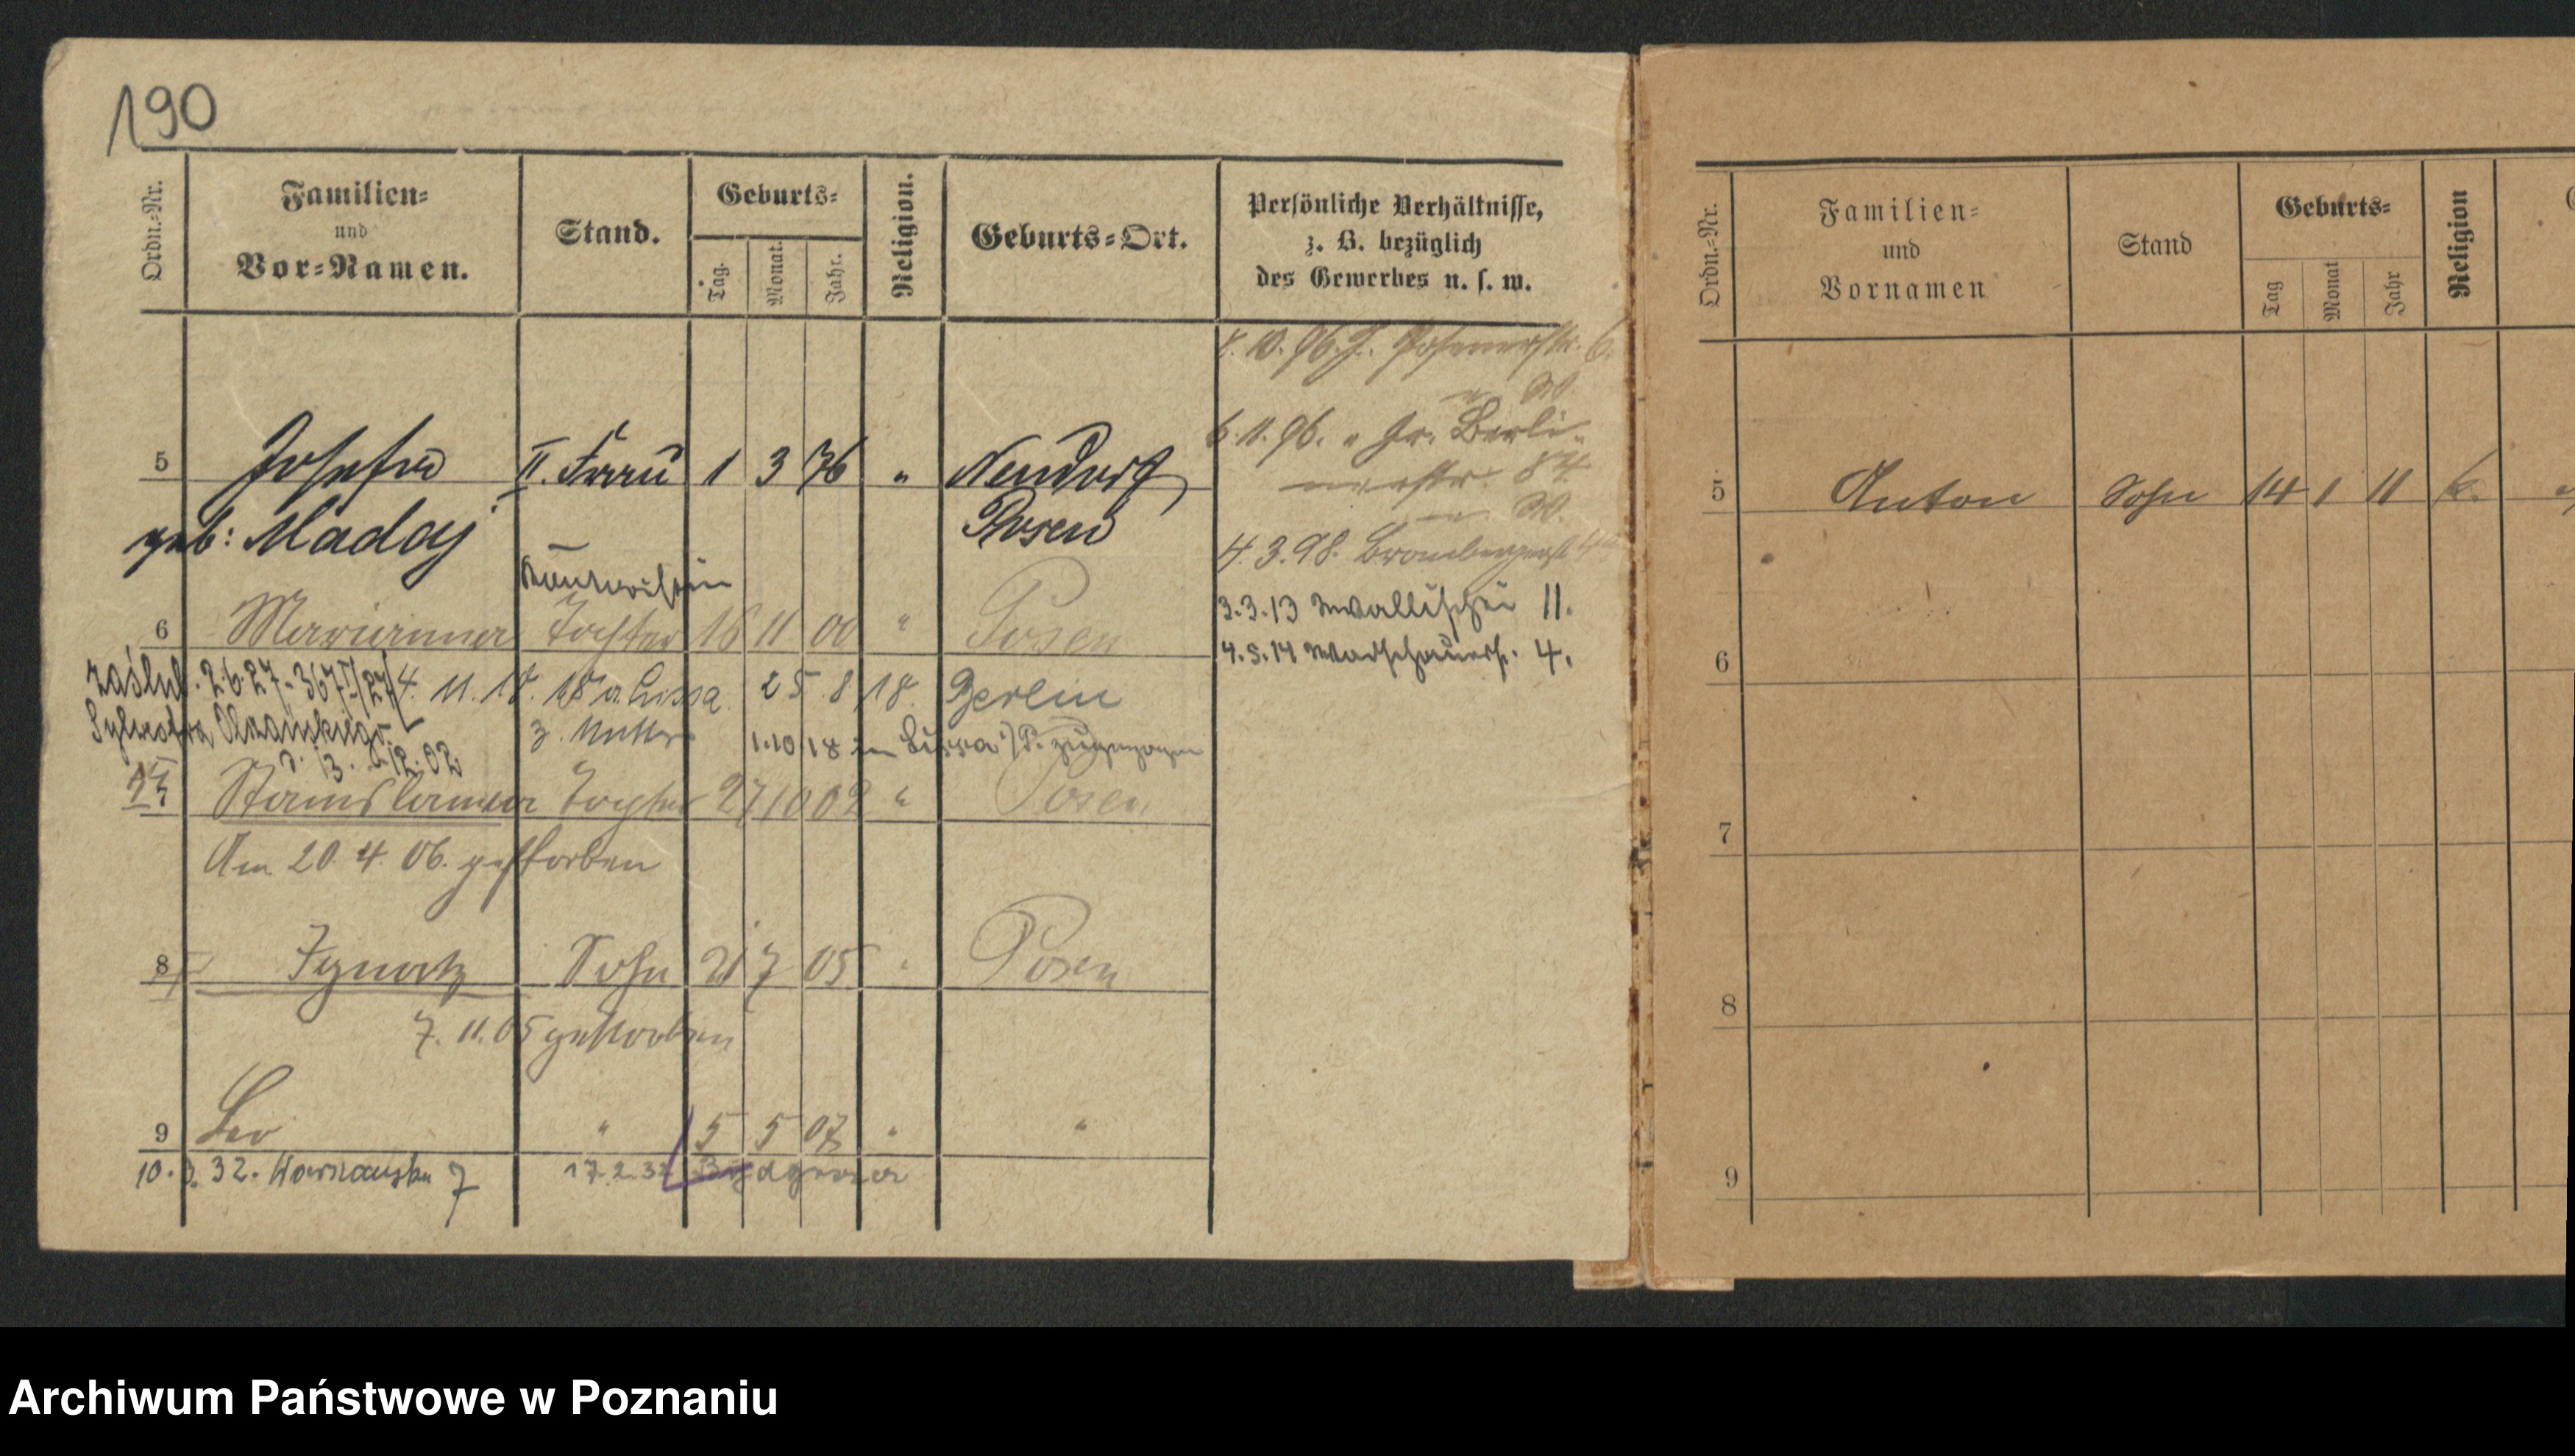 190
Ordn.-Nr.
Familien-
und
Vor-Namen.
Stand.
Geburts-
Tag.
Monat.
Jahr.
Religion.
Geburts-Ort.
Persönliche Verhältnisse,
z. B. bezüglich
des Gewerbes u. s. w.
8. 10. 96. J. Posenerstr. 6.
W.
5 Josefa II. Frau 1 3 76 " Neudorf
6. 11. 96. " Gr. Berli-
nerstr. 84
W.
geb: Madaj Posen
4. 3. 98. Brombergerst
Kontoristin
3.3.13 Wallischei 11.
6 Marianna Tochter 16 11 00 " Posen
4.5.14 Warschauerst. 4.
zaślub. 2.6.27 - 367/27 4. 11. 18. a. Lissa 25. 8. 18. Berlin
Sylwestra z. Mutter 1.10.18 in Lissa i/P. zugezogen
13. 12. 02
Stanislawa Tochter 27 10 02 " Posen
Am 20. 4. 06. gestorben
8 Ignatz Sohn 21 7 05 " Posen
7. 11. 05 gestorben
9 Leo " 5 5 07 " "
10. 3. 32. Warszawska 7 17.2.32 Bydgoszcz
Ordn.-Nr.
Familien-
und
Vornamen
Stand
Geburts-
Tag
Monat
Jahr
Religion
5 Anton Sohn 14 1 11 k.
6
7
8
9
Archiwum Państwowe w Poznaniu